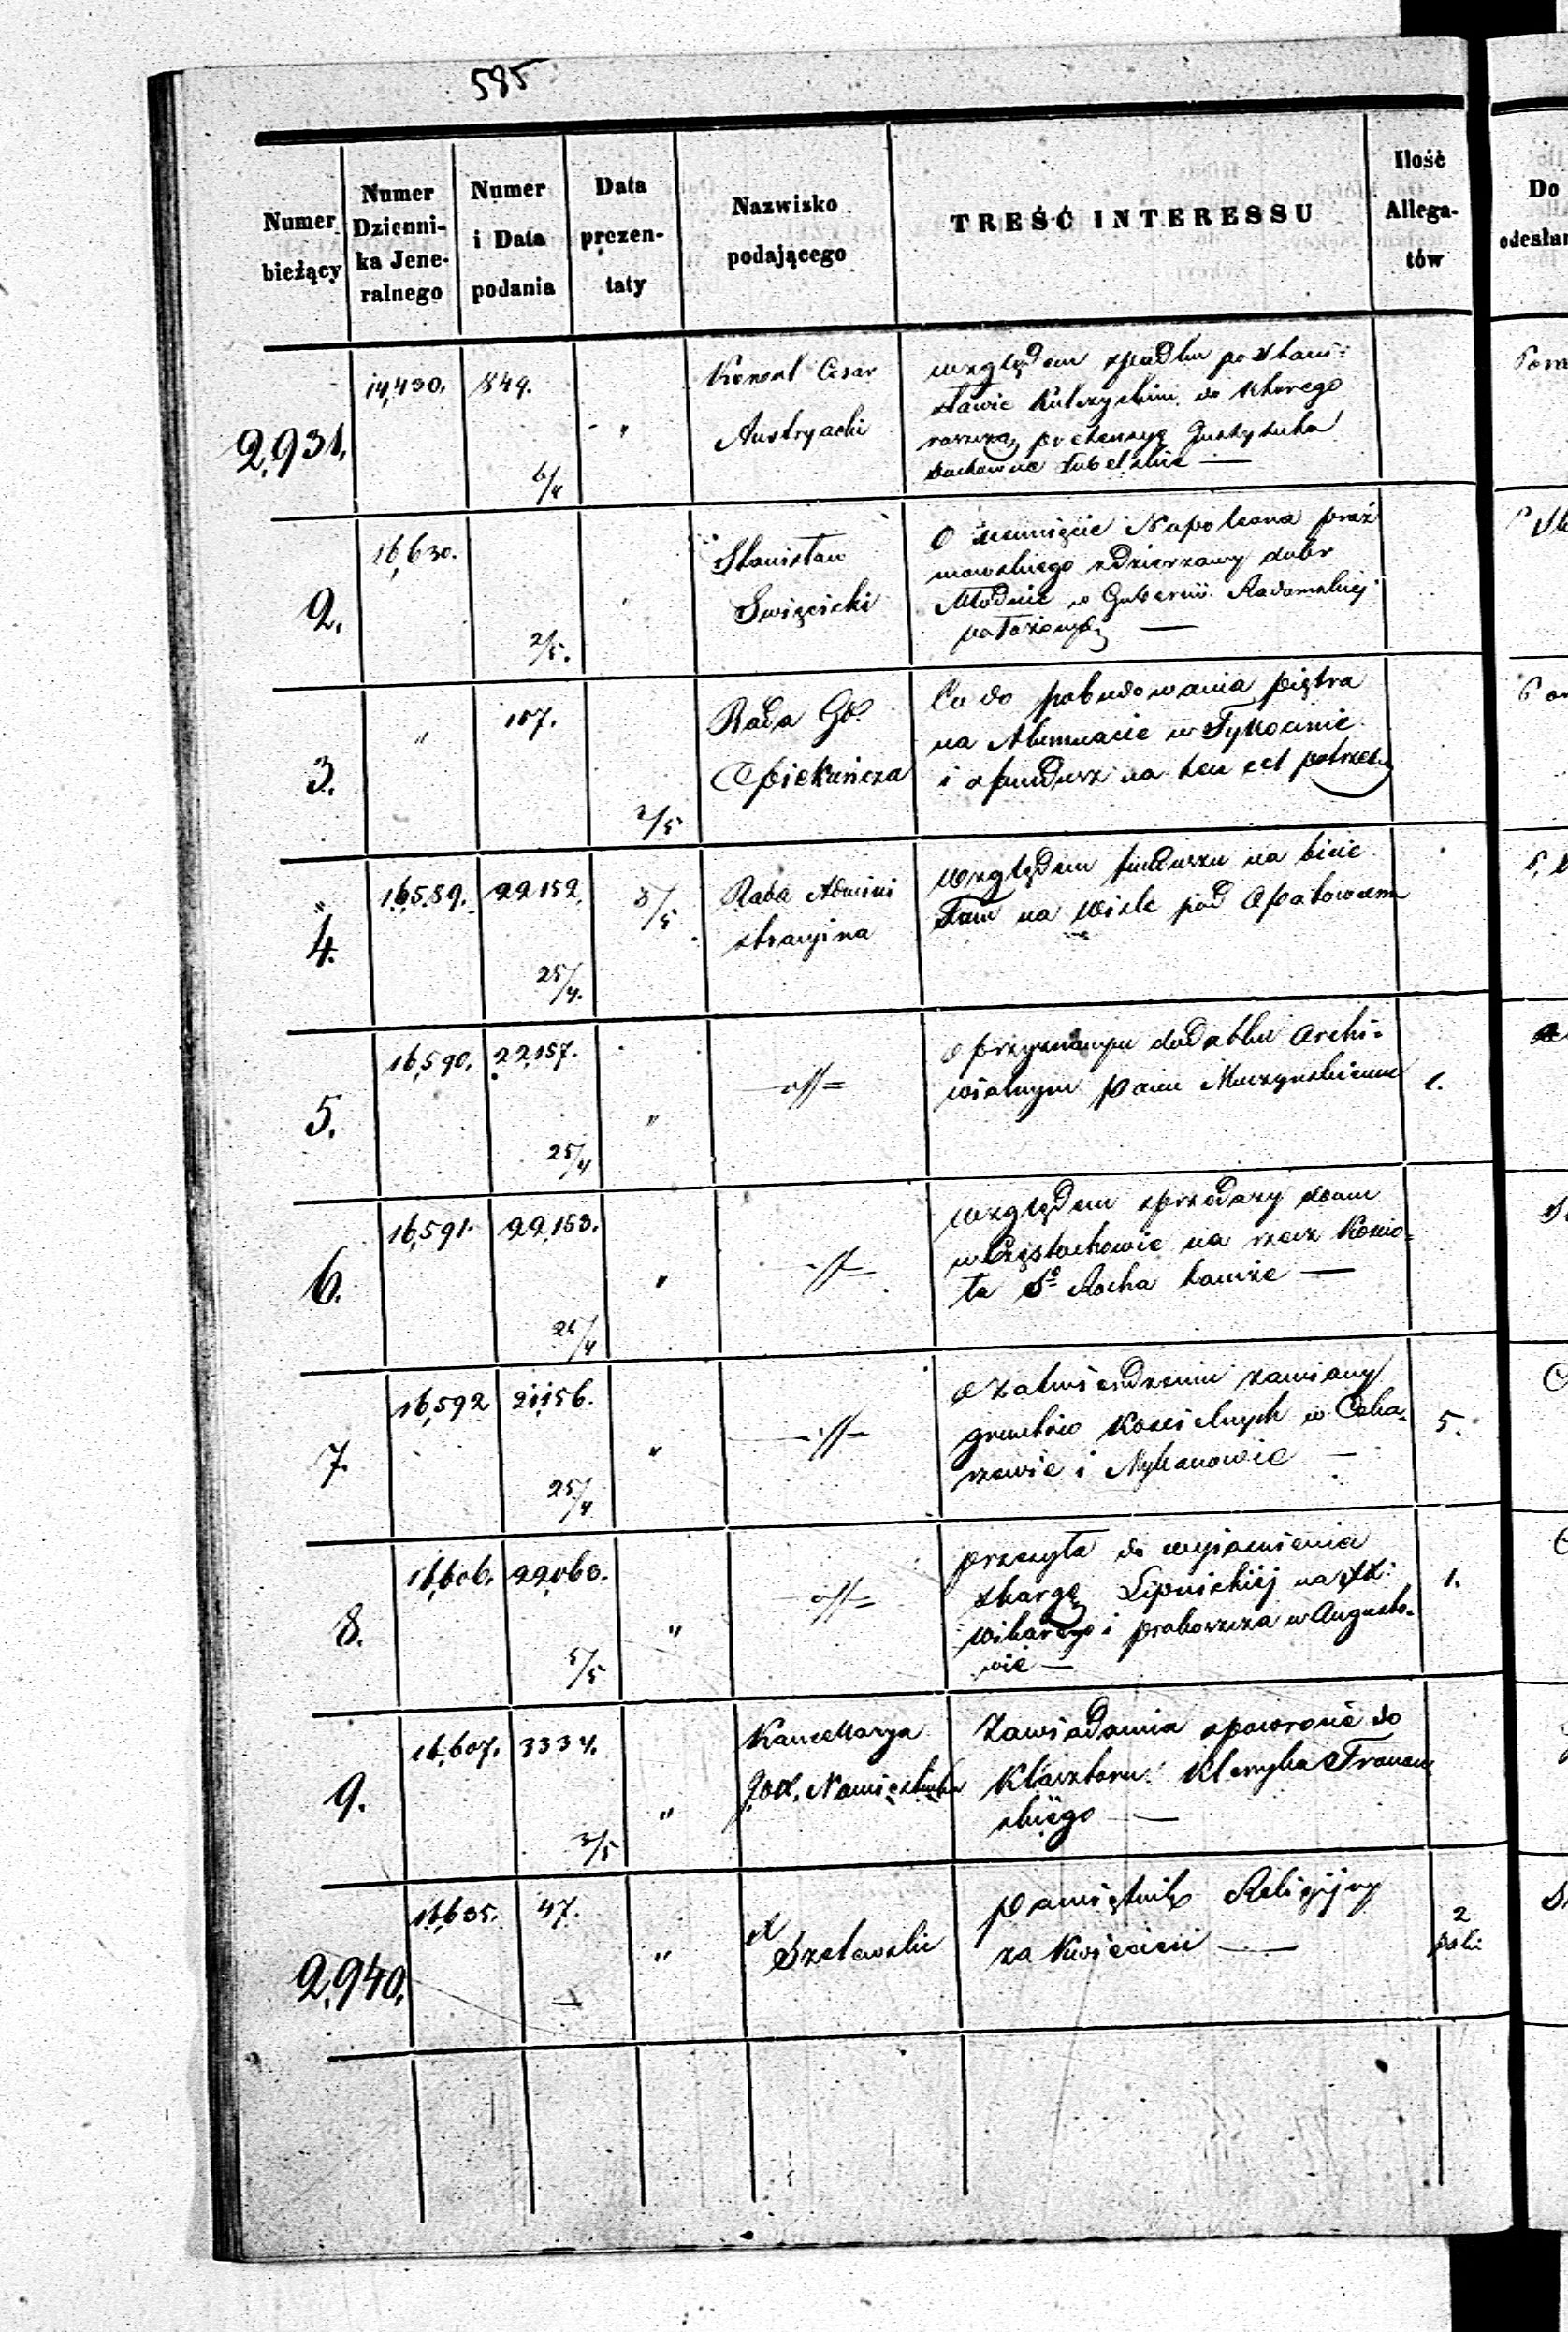 585
Numer bieżący | Numer Dzienni-ka Jene-ralnego | Numer i Data podania | Data prezen-taty | Nazwisko podającego | TREŚĆ INTERESSU | Ilość Allega-tów | Do
odesła
2,931. | 14,430. | 849. 6/4 | " | Cesar Austryacki | względem spadku po Stani=
sławie Kulczyckim do którego
pretensyę Instytuta
duchowne Lubelskie —
2. | 16,630. | 2/5. | Stanisław Swięcicki | O usunięcie Napoleona Praż
mowskiego z dzierzawy dobr
w Gubernii Radomskiej
położonych —
3. | " | 107. | 2/5 | Rada Gł. Opiekuńcza | Co do pobudowania piętra
na Alumnacie w Tykocinie
i o fundusz na ten cel potrzeb
4. | 16,589. | 22152. 25/4. | 3/5 | Rada Admini stracyjna | Względem funduszu na bicie
Tam na Wisle pod Opatowcem
5. | 16,590. | 22,157. 25/4 | " | —dtt= | O przyznanym dodatku archi=
wialnym Panu Muczyńskiemu | 1.
6. | 16,591. | 22,153. 25/4 | " | —dtt= | względem sprzedazy domu
w Częstochowie na rzecz Kościo=
ła Sgo Rocha tamże —
7. | 16,592 | 21,156. 25/4 | " | —dtt— | O zatwierdzeniu zamiany
gruntów Kościelnych w
i — | 5.
8. | 16,606. | 22,060. 5/5 | " | —dtt= | przesyła do wyjaśnienia
skargę Lipnickiej na XX:
wikarego i proboszcza w Augusto-
wie — | 1.
9. | 16,607. | 3334. 3/5 | " | Kancellarya JOX. Namiestnika | Zawiadamia o powrocie do
Klasztoru Kleryka
skiego —
2,940. | 16,635. | 47. — | " | X Szelewski | Pamiętnik Religijny
za Kwiecień — | 2